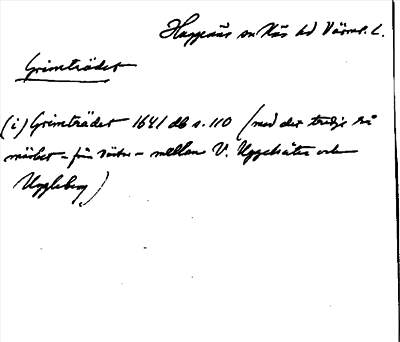 Huggenäs sn Näs hd Värml. l.
Grimträdet
(i) Grimträdet 1641 db s. 110 (med det tredje rå
märket - från väster - mellan V. Uggelsäter och
Uggleberg)